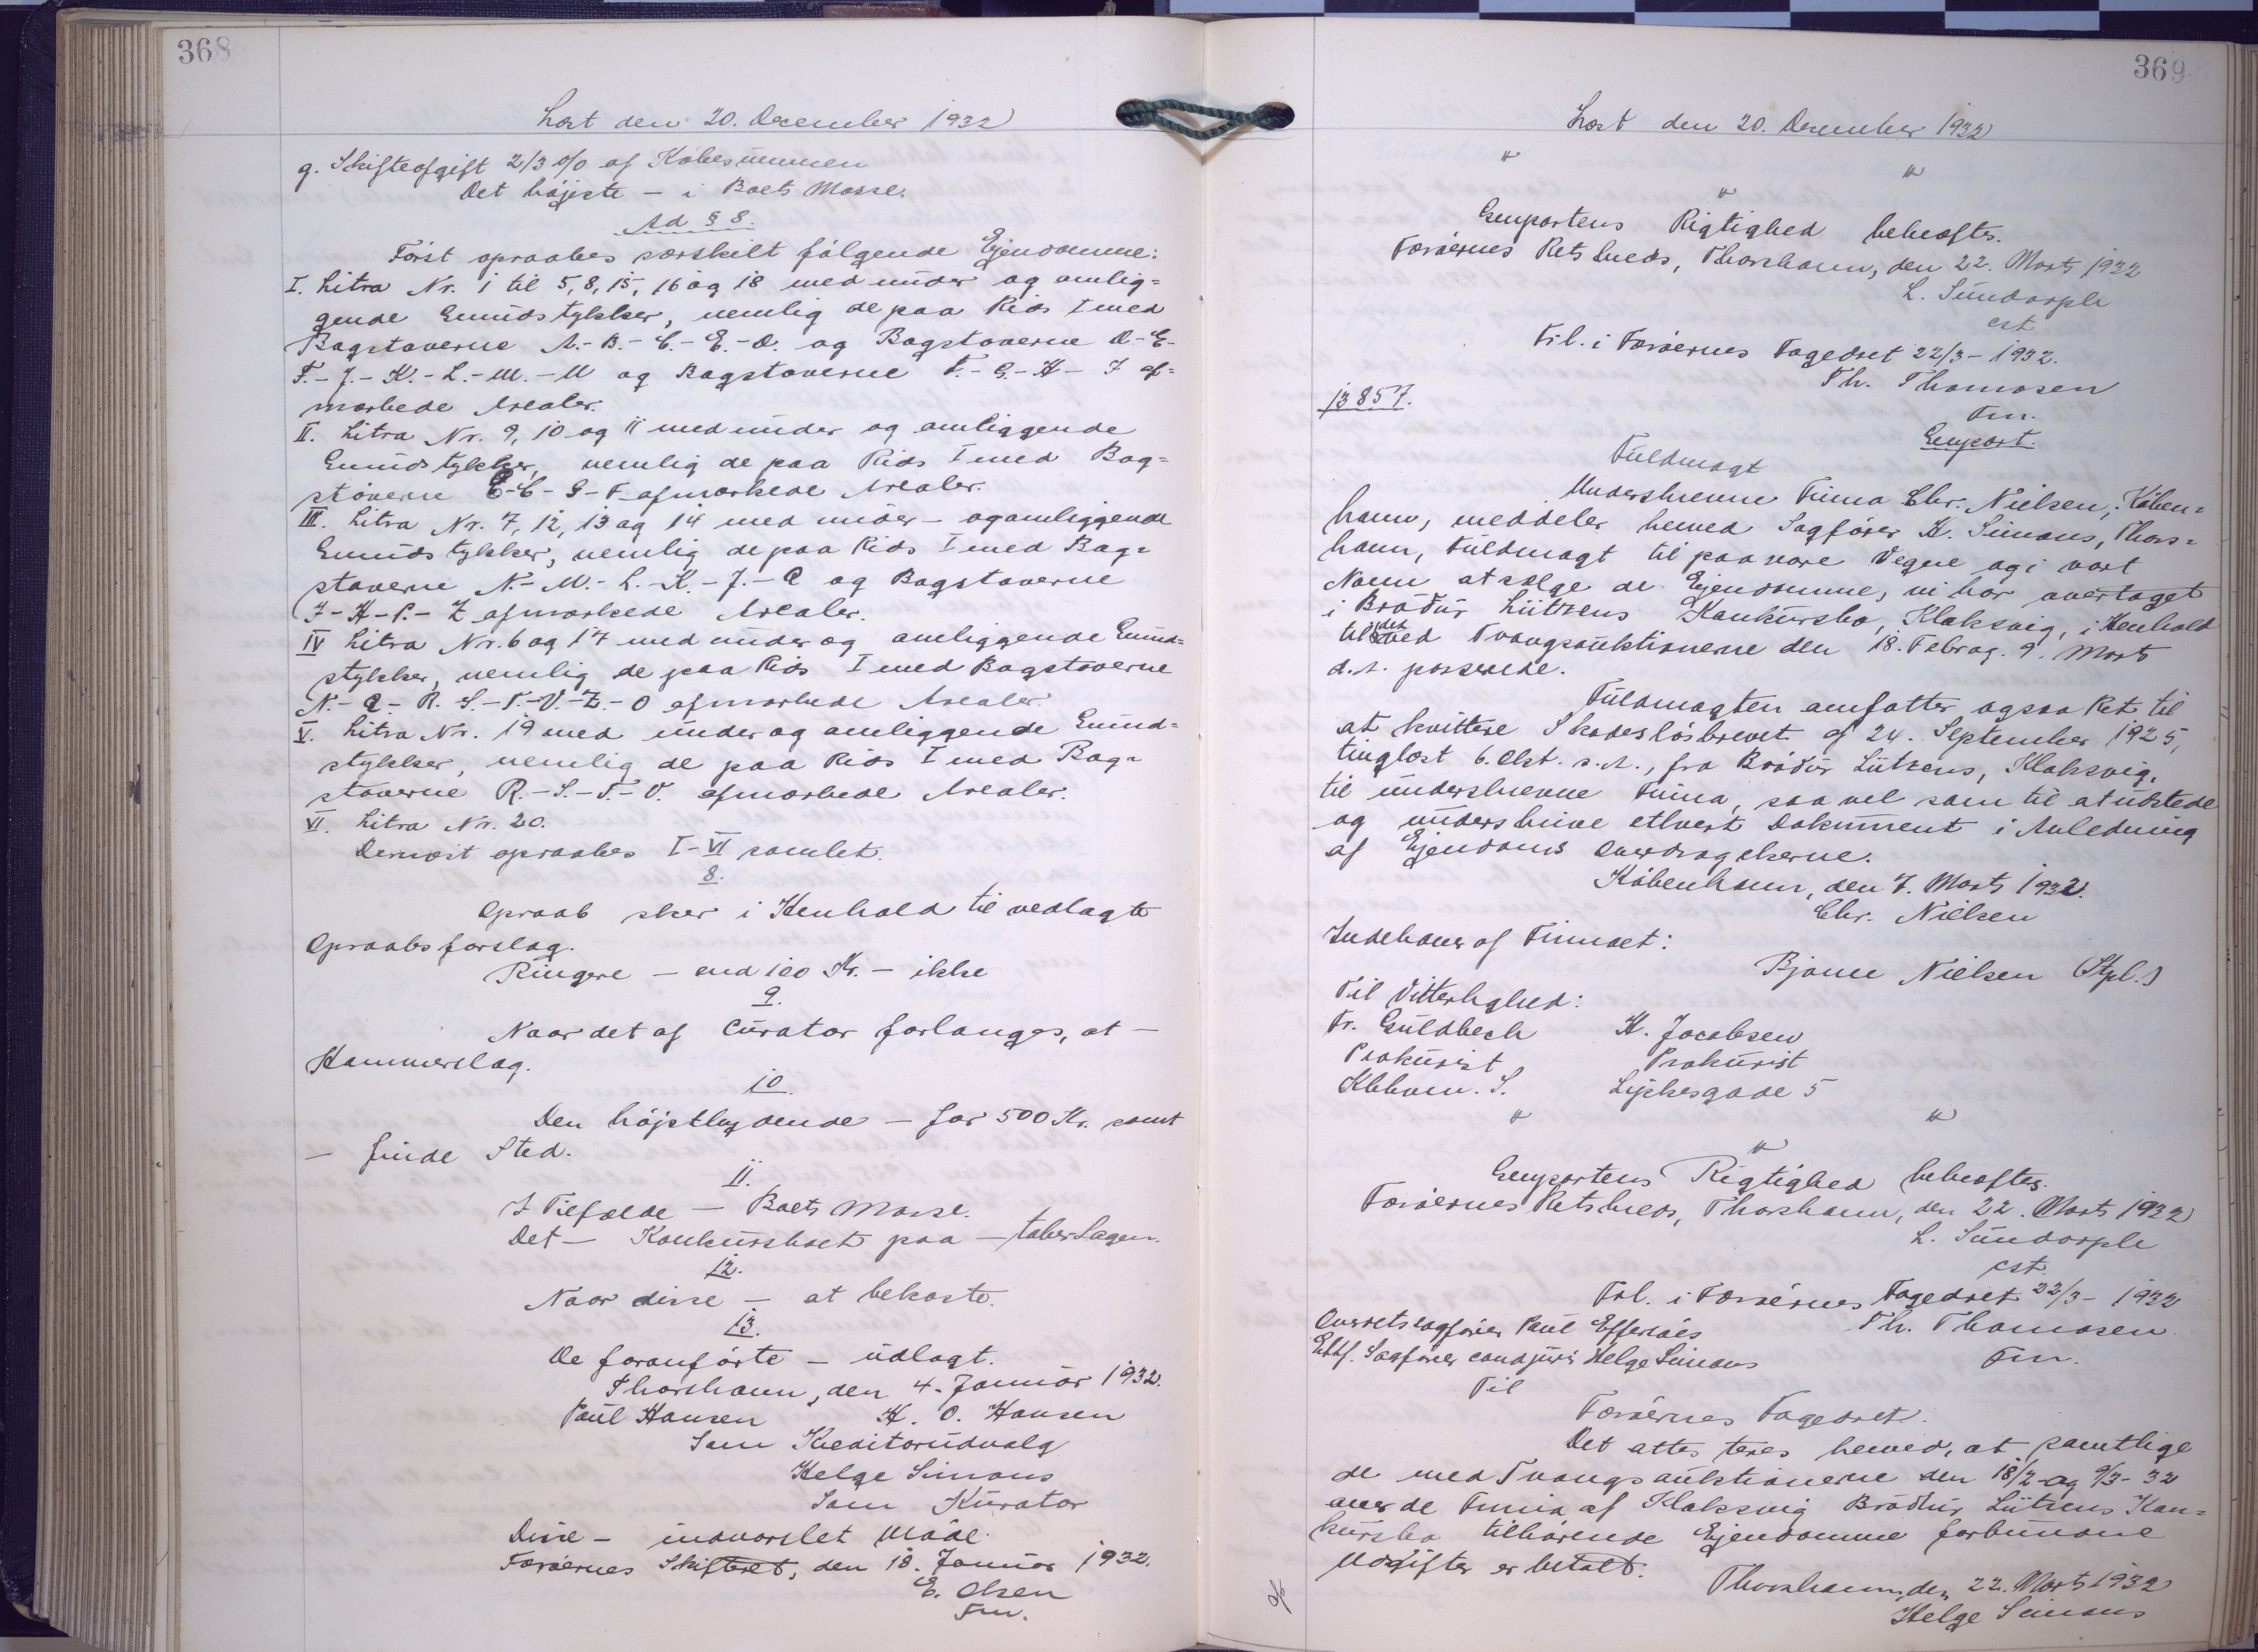 368
Læst den 20. December 1932
g. Skifteafgift 2/3 % af Købesummen
Det højeste - i Boets Masse.
Ad § 8.
Først opraabes særskilt følgende Ejendomme:
I. Litra Nr. 1 til 5, 8, 15, 16 og 18 med under og omlig=
gende Grundstykker, nemlig de paa Rids I med
Bogstaverne A.-B.-C.-E.-D. og Bogstaverne D-E-
F.-J.-K.-L.-M.-N og Bogstaverne F.-G.-H-J af=
mærkede Arealer.
II. Litra Nr. 9, 10 og 11 med under og omliggende
Grundstykker, nemlig de paa Rids I med Bog=
staverne E-C-G-F afmærkede Arealer.
III. Litra Nr. 7, 12, 13 og 14 med under- og omliggende
Grundstykker, nemlig de paa Rids I med Bog=
staverne N.-M.-L.-K.-J.-Q og Bogstaverne
J-H-P.-Z afmærkede Arealer.
IV Litra Nr. 6 og 17 med under og omliggende Grund=
stykker, nemlig de paa Rids I med Bogstaverne
N.-Q.-R.S.-T.-V.-Z.-O afmærkede Arealer.
V. Litra Nr. 19 med under og omliggende Grund=
stykker, nemlig de paa Rids I med Bog=
staverne R.-S.-T.-V. afmærkede Arealer.
VI. Litra Nr. 20.
Dernæst opraabes I-VI samlet.
8.
Opraab sker i Henhold til vedlagte
Opraabsforslag.
Ringere - end 100 Kr. - ikke
9.
Naar det af Curator forlanges, at -
Hammerslag.
10.
Den højstbydende - for 500 Kr. samt
- finde Sted.
11.
I Tilfælde - Boets Masse.
Det - Konkursboet paa - taber Sagen.
12.
Naar disse - at bekoste.
13.
De foranførte - udlagt.
Thorshavn, den 4. Januar 1932.
Paul Hansen H. O. Hansen
Som Kreditorudvalg
Helge Simons
Som Kurator
Disse - indvarslet Møde.
Færøernes Skifteret, den 18. Januar 1932.
E. Olsen
Fm.
369
Læst den 20. December 1932
" "
"
Genpartens Rigtighed bekræftes.
Færøernes Retskreds, Thorshavn, den 22. Marts 1932
L. Sundorph
cst
Frl. i Færøernes Fogedret 22/3 - 1932.
Th. Thomasen
Fm.
13857.
Genpart.
Fuldmagt
Underskrevne Firma Chr. Nielsen, Køben=
havn, meddeler herved Sagfører H. Simons, Thors=
havn, Fuldmagt til paa vore Vegne og i vort
Navn at sælge de Ejendomme, vi har overtaget
i Brødur Lützens Konkursbo, Klaksvig, i Henhold
til det ved Tvangsauktionerne den 18. Febr. og 9. Marts
d. A. passerede.
Fuldmagten omfatter ogsaa Ret til
at kvittere Skadesløsbrevet af 24. September 1925,
tinglæst 6. Okt. s. A., fra Brødur Lützens, Klaksvig,
til underskrevne Firma, saavel som til at udstede
og underskrive ethvert Dokument i Anledning
af Ejendoms Overdragelserne.
København, den 7. Marts 1932.
Chr. Nielsen
Indehaver af Firmaet:
Bjarne Nielsen (Stpl.)
Til Vitterlighed:
Fr. Guldbech H. Jacobsen
Prokurist Prokurist
Kbhavn. S. Lyskesgade 5
" "
"
Genpartens Rigtighed bekræftes.
Færøernes Retskreds, Thorshavn, den 22. Marts 1932
L. Sundorph
cst.
Frl. i Færøernes Fogedret 22/3 - 1932
Th. Thomasen
Overretssagfører Paul Effersøes
Eftf. Sagfører cand juris Helge Simons Fm.
Til
Færøernes Fogedret.
Det attesteres herved, at samtlige
de med Tvangsauktionerne den 18/2 og 9/3 - 32
over de Firma af Klaksvig Brødur Lützens Kon=
kursbo tilhørende Ejendomme forbundne
Udgifter er betalt.
Thorshavn, den 22. Marts 1932
Helge Simons